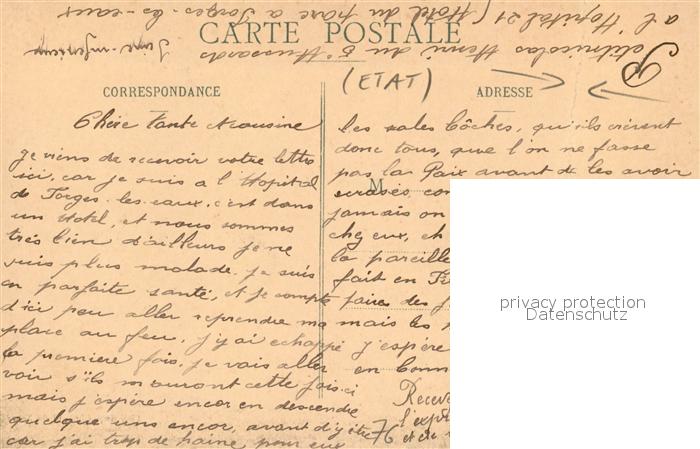 a l'Hopital 21 (Hôtel du parc a Forges-les-eaux
Petitnicolas Henri du 5e Hussards
Seine-inférieure
CARTE POSTALE
(ETAT)
CORRESPONDANCE
Chère tante et cousine
je viens de recevoir votre lettre
ici, car je suis a l'Hopital
de Forges-les-eaux. c'est dans
un Hotel, et nous sommes
très bien d'ailleurs je ne
suis plus malade. je suis
en parfaite santé, et je compte
d'ici peu aller reprendre ma
place au feu, j'y ai echappé
la premiere fois. je vais aller
voir s'ils m'auront cette fois-ci
mais j'espère encor en descendre
quelque uns encor, avant d'y être
car j'ai trop de haine pour eux
ADRESSE
les sales bôches, qu'ils crèvent
donc tous, que l'on ne fasse
pas la Paix avant de les avoir
M
ecrasés, co
jamais on
chez eux, et
la pareille
fait en
faire des
mais les
j'espère
en bonn
Receve
l'expr
76 et de
privacy protection
Datenschutz